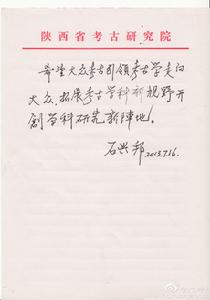 陕西省考古研究院
希望大众考古引领考古学走向
大众,拓展考古学科新视野开
创学科研究新阵地!
石兴邦 2013.7.16.